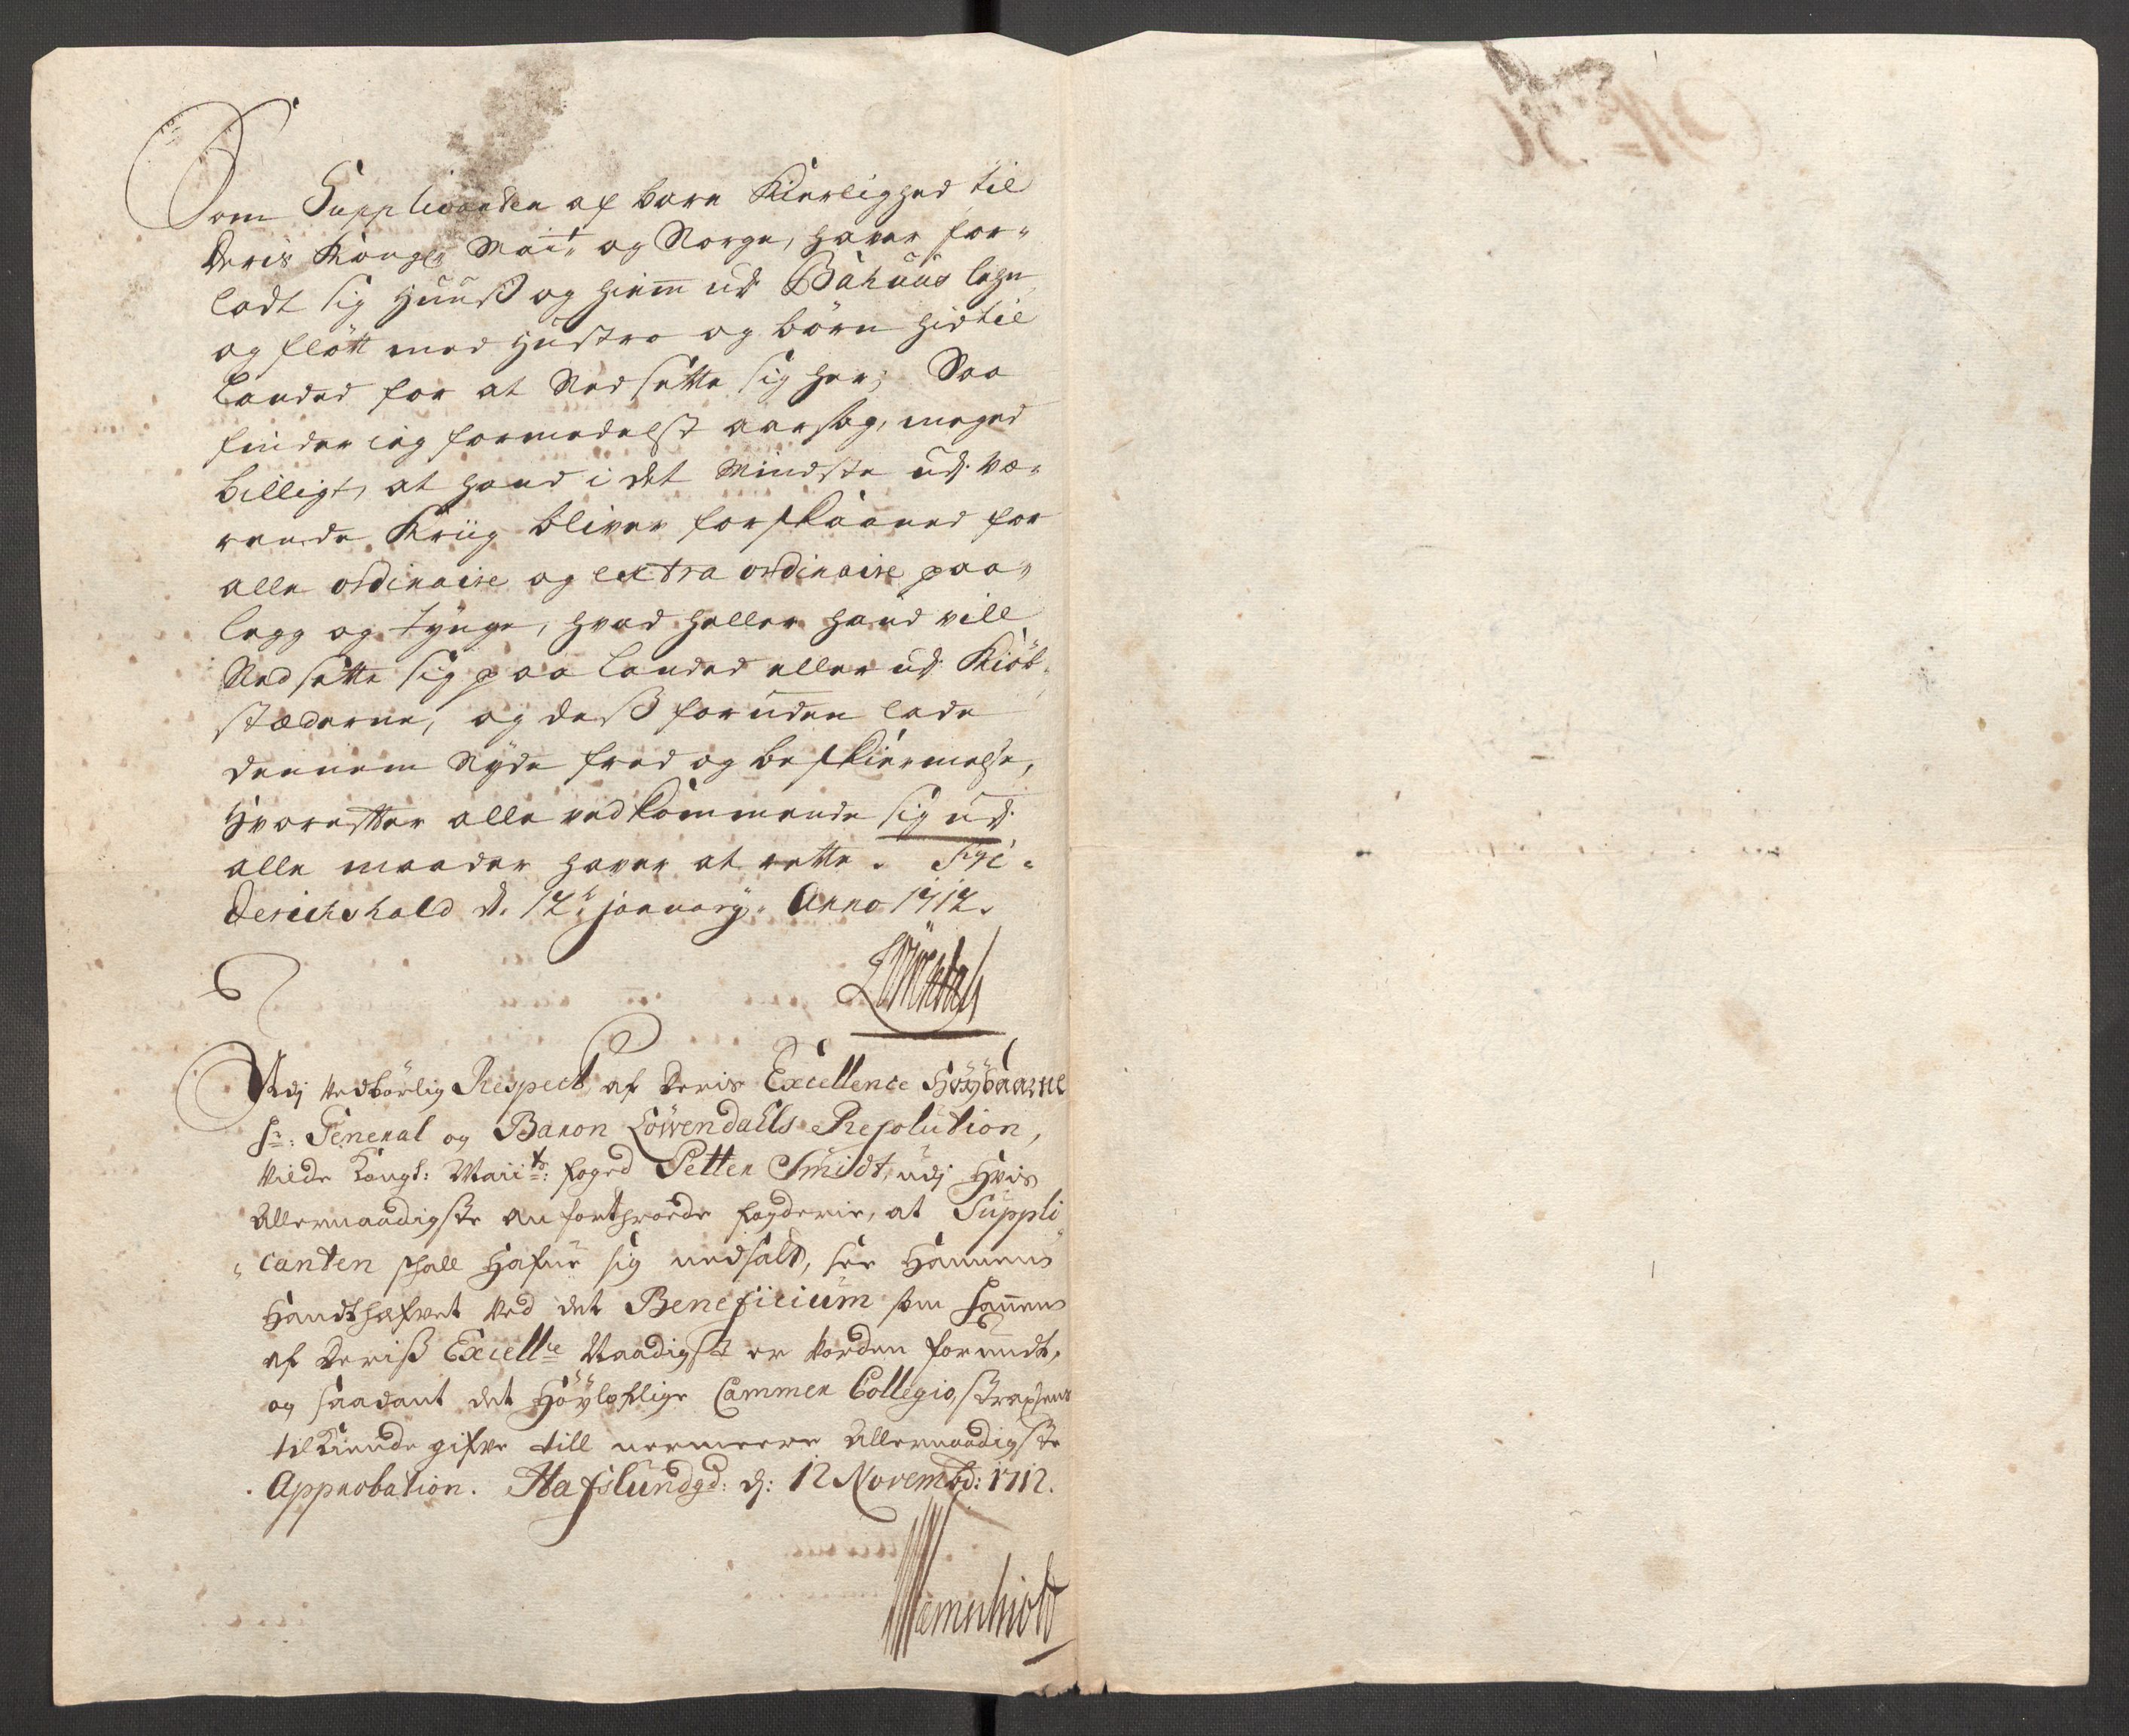 Som Supplicanden af bare Kierlighed til
Deris Kongl: Mai:t og Norge, haver for-
ladt sig Huuß og hiem ud Bahuus lehn
og fløtt med Hustro og börn hidtil
Landed for at Nedsette sig her; Saa
finder ieg formedelst aarsag, meged
billigt, at hand i det Mindste udj. væ-
rende Kriig bliver forskaaned for
alle ordinaire og extra ordinaire paa-
legg og tynge, hvad heller hand vill
Nedsette sig paa Landed eller udj Kiöb-
stæderne, og deß foruden lade
dennem Nyde fred og beskiermelse,
Hvorefter alle vedkommende sig udj.
alle maader haver at rette. Fri-
derichshald d. 12t january. Anno 1712.
Löwendahl
Udj vedbörlig Respect, af Deris Excellence Höybaarne
Hr: General og Baron Löwendahls Resolution,
Vilde Kongl: Maiits: foged Petter Smidt, udj Hvis
Allernaadigste anfortroede fogderie, at Suppli-
canten skall Hafue sig nedsatt, see Hannem
Handthæfvet ved det Beneficium som hannem
af Deriß Excellce Naadigst er vorden forundt,
og saadant det Höyloflige Cammer Collegio, straxens
tilkiende gifve till nermeere Allernaadigste
Approbation. Hafslundgd: d: 12 Novembr: 1712.
Wernschiold
No 30